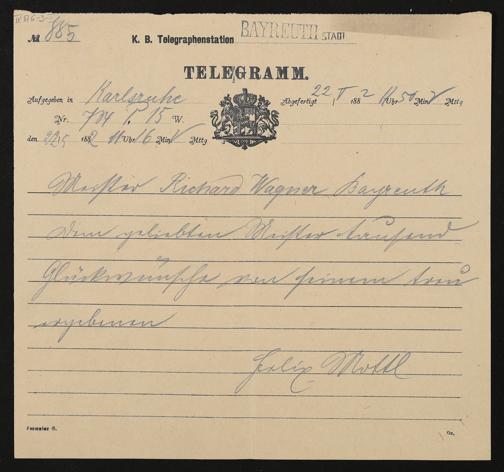 № 885 K. B. Telegraphenstation BAYREUTH STADT
TELEGRAMM.
Aufgegeben in Karlsruhe Abgefertigt 22 V 1882 11 Uhr 50 Min V Mttg
Nr. 784 T. 15 W.
den 22/5 1882 11 Uhr 6 Min V Mttg
Meister Richard Wagner Bayreuth
dem geliebten Meister tausend
Glückwünsche von seinem treu
ergebenen
Felix Mottl
Formular 6.